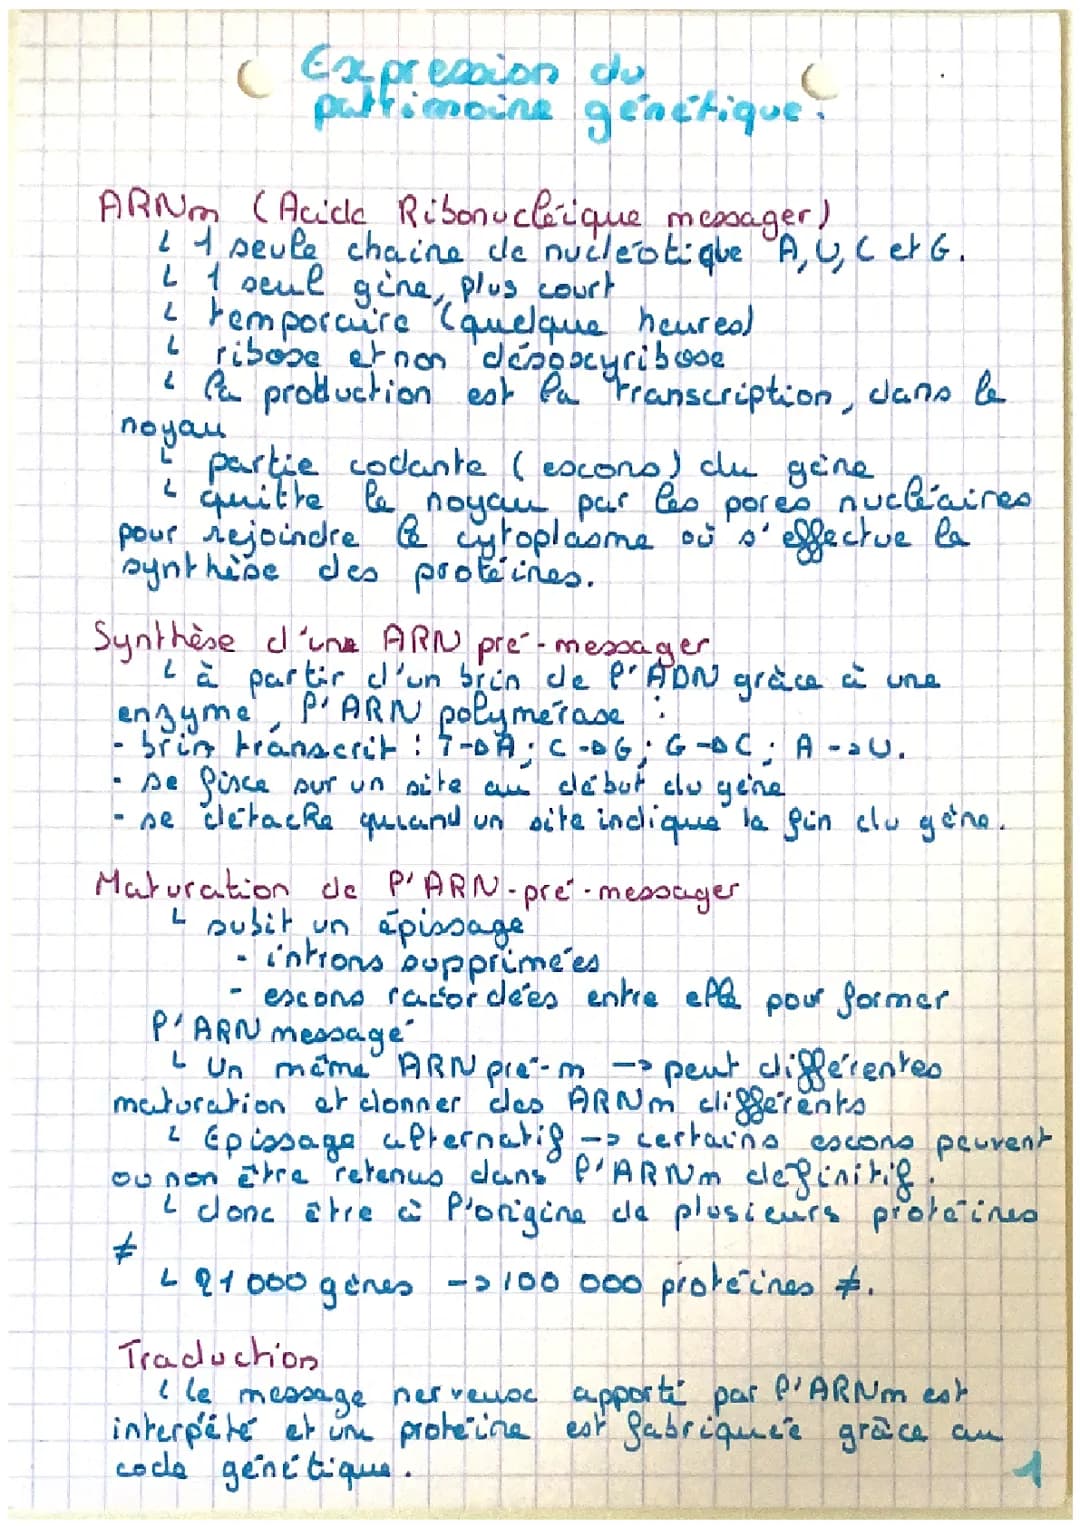 Expression du
patrimoine génétique.
ARNm (Acide Ribonucléique messager)
↳ 1 seule chaine de nucléotique A, U, C et G.
↳ 1 seul gène, plus court
↳ temporaire (quelque heures)
↳ ribose et non désoxyribose
↳ la production est la transcription, dans le
noyau
↳ partie codante (exons) du gène
↳ quitte le noyau par les pores nucléaires
pour rejoindre le cytoplasme où s'effectue la
synthèse des protéines.
Synthèse d'une ARN pré-messager
↳ à partir d'un brin de l'ADN grâce à une
enzyme, l'ARN polymérase :
- brin transcrit : T→A ; C→G ; G→C ; A→U.
- se fixe sur un site au début du gène
- se détache quand un site indique la fin du gène.
Maturation de l'ARN-pré-messager
↳ subit un épissage
- introns supprimées
- exons racordées entre elle pour former
l'ARN messagé
↳ Un même ARN pré-m → peut différentes
maturation et donner des ARNm différents
↳ Epissage alternatif → certains exons peuvent
ou non être retenus dans l'ARNm définitif.
↳ donc être à l'origine de plusieurs protéines
≠
↳ 21 000 gènes → 100 000 protéines ≠.
Traduction
↳ le message nerveux apporté par l'ARNm est
interpété et une protéine est fabriquée grâce au
code génétique.
1